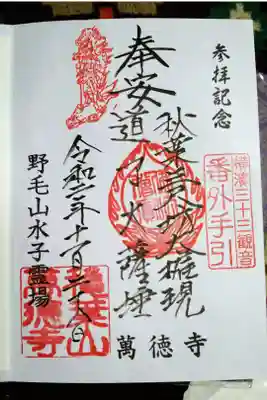 参拝記念
横濱三十三観音
番外手引
奉安
秋葉三尺坊大権現
道了大薩埵
令和二年十一月二十八日
野毛山水子霊場
萬徳寺
萬徳寺